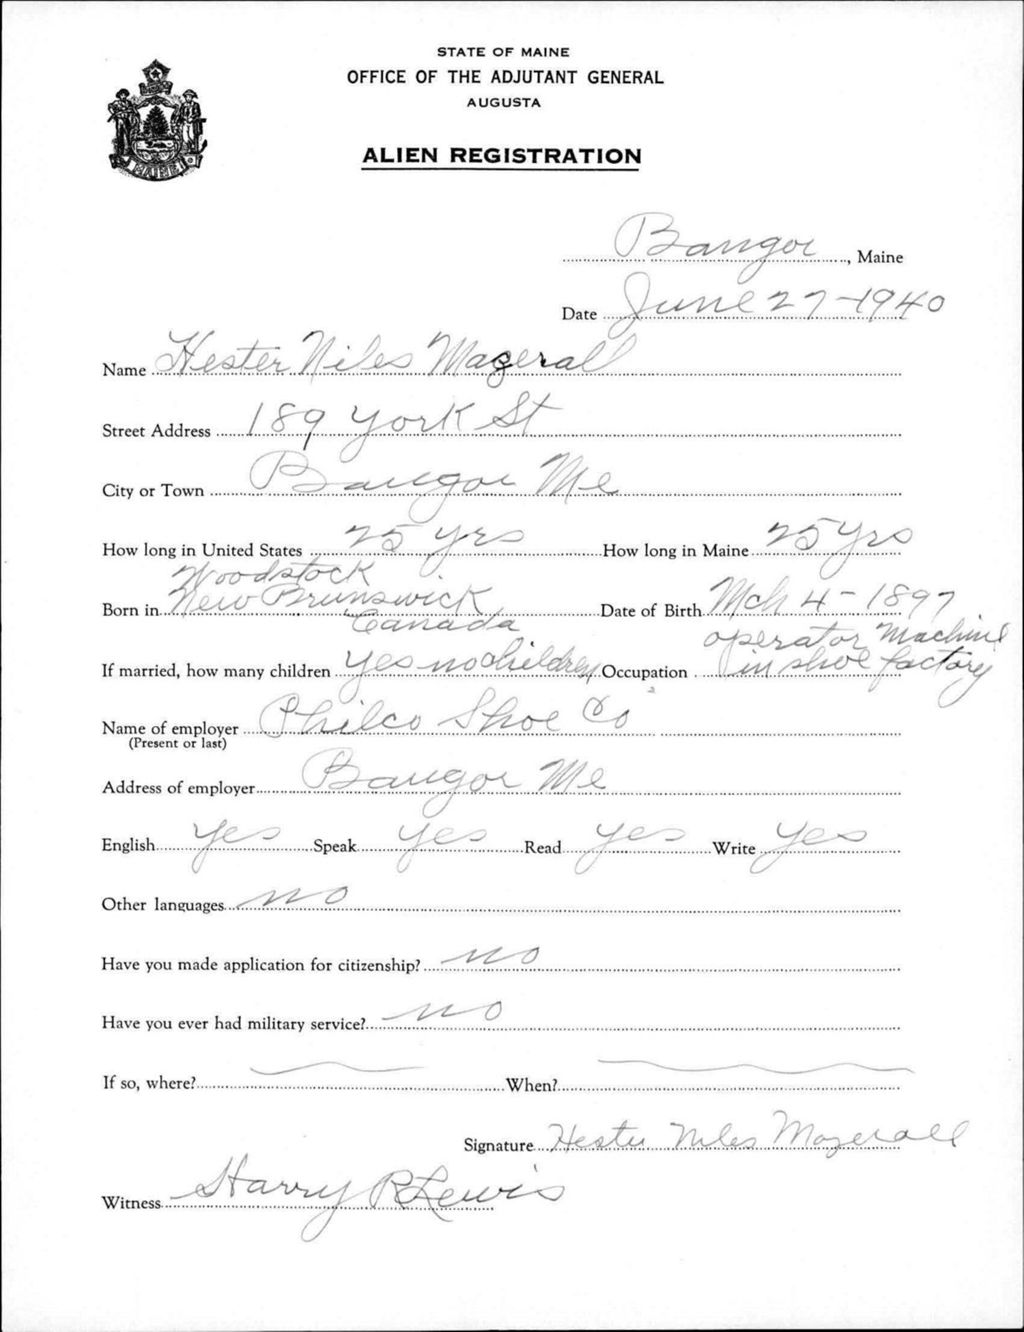 STATE OF MAINE
OFFICE OF THE ADJUTANT GENERAL
AUGUSTA
ALIEN REGISTRATION
Bangor, Maine
Date June 27-1940
Name Hester Niles Mazerall
Street Address 189 York St
City or Town Bangor Me
How long in United States 25 yrs How long in Maine 25 yrs
Woodstock
Born in New Brunswick Date of Birth Mch 4-1897
Canada
operator Machine
If married, how many children yes no children Occupation in shoe factory
Name of employer Philco Shoe Co
(Present or last)
Address of employer Bangor Me
English yes Speak yes Read yes Write yes
Other languages no
Have you made application for citizenship? no
Have you ever had military service? no
If so, where? When?
Signature Hester Niles Mazerall
Witness Harry R Lewis
MAINE